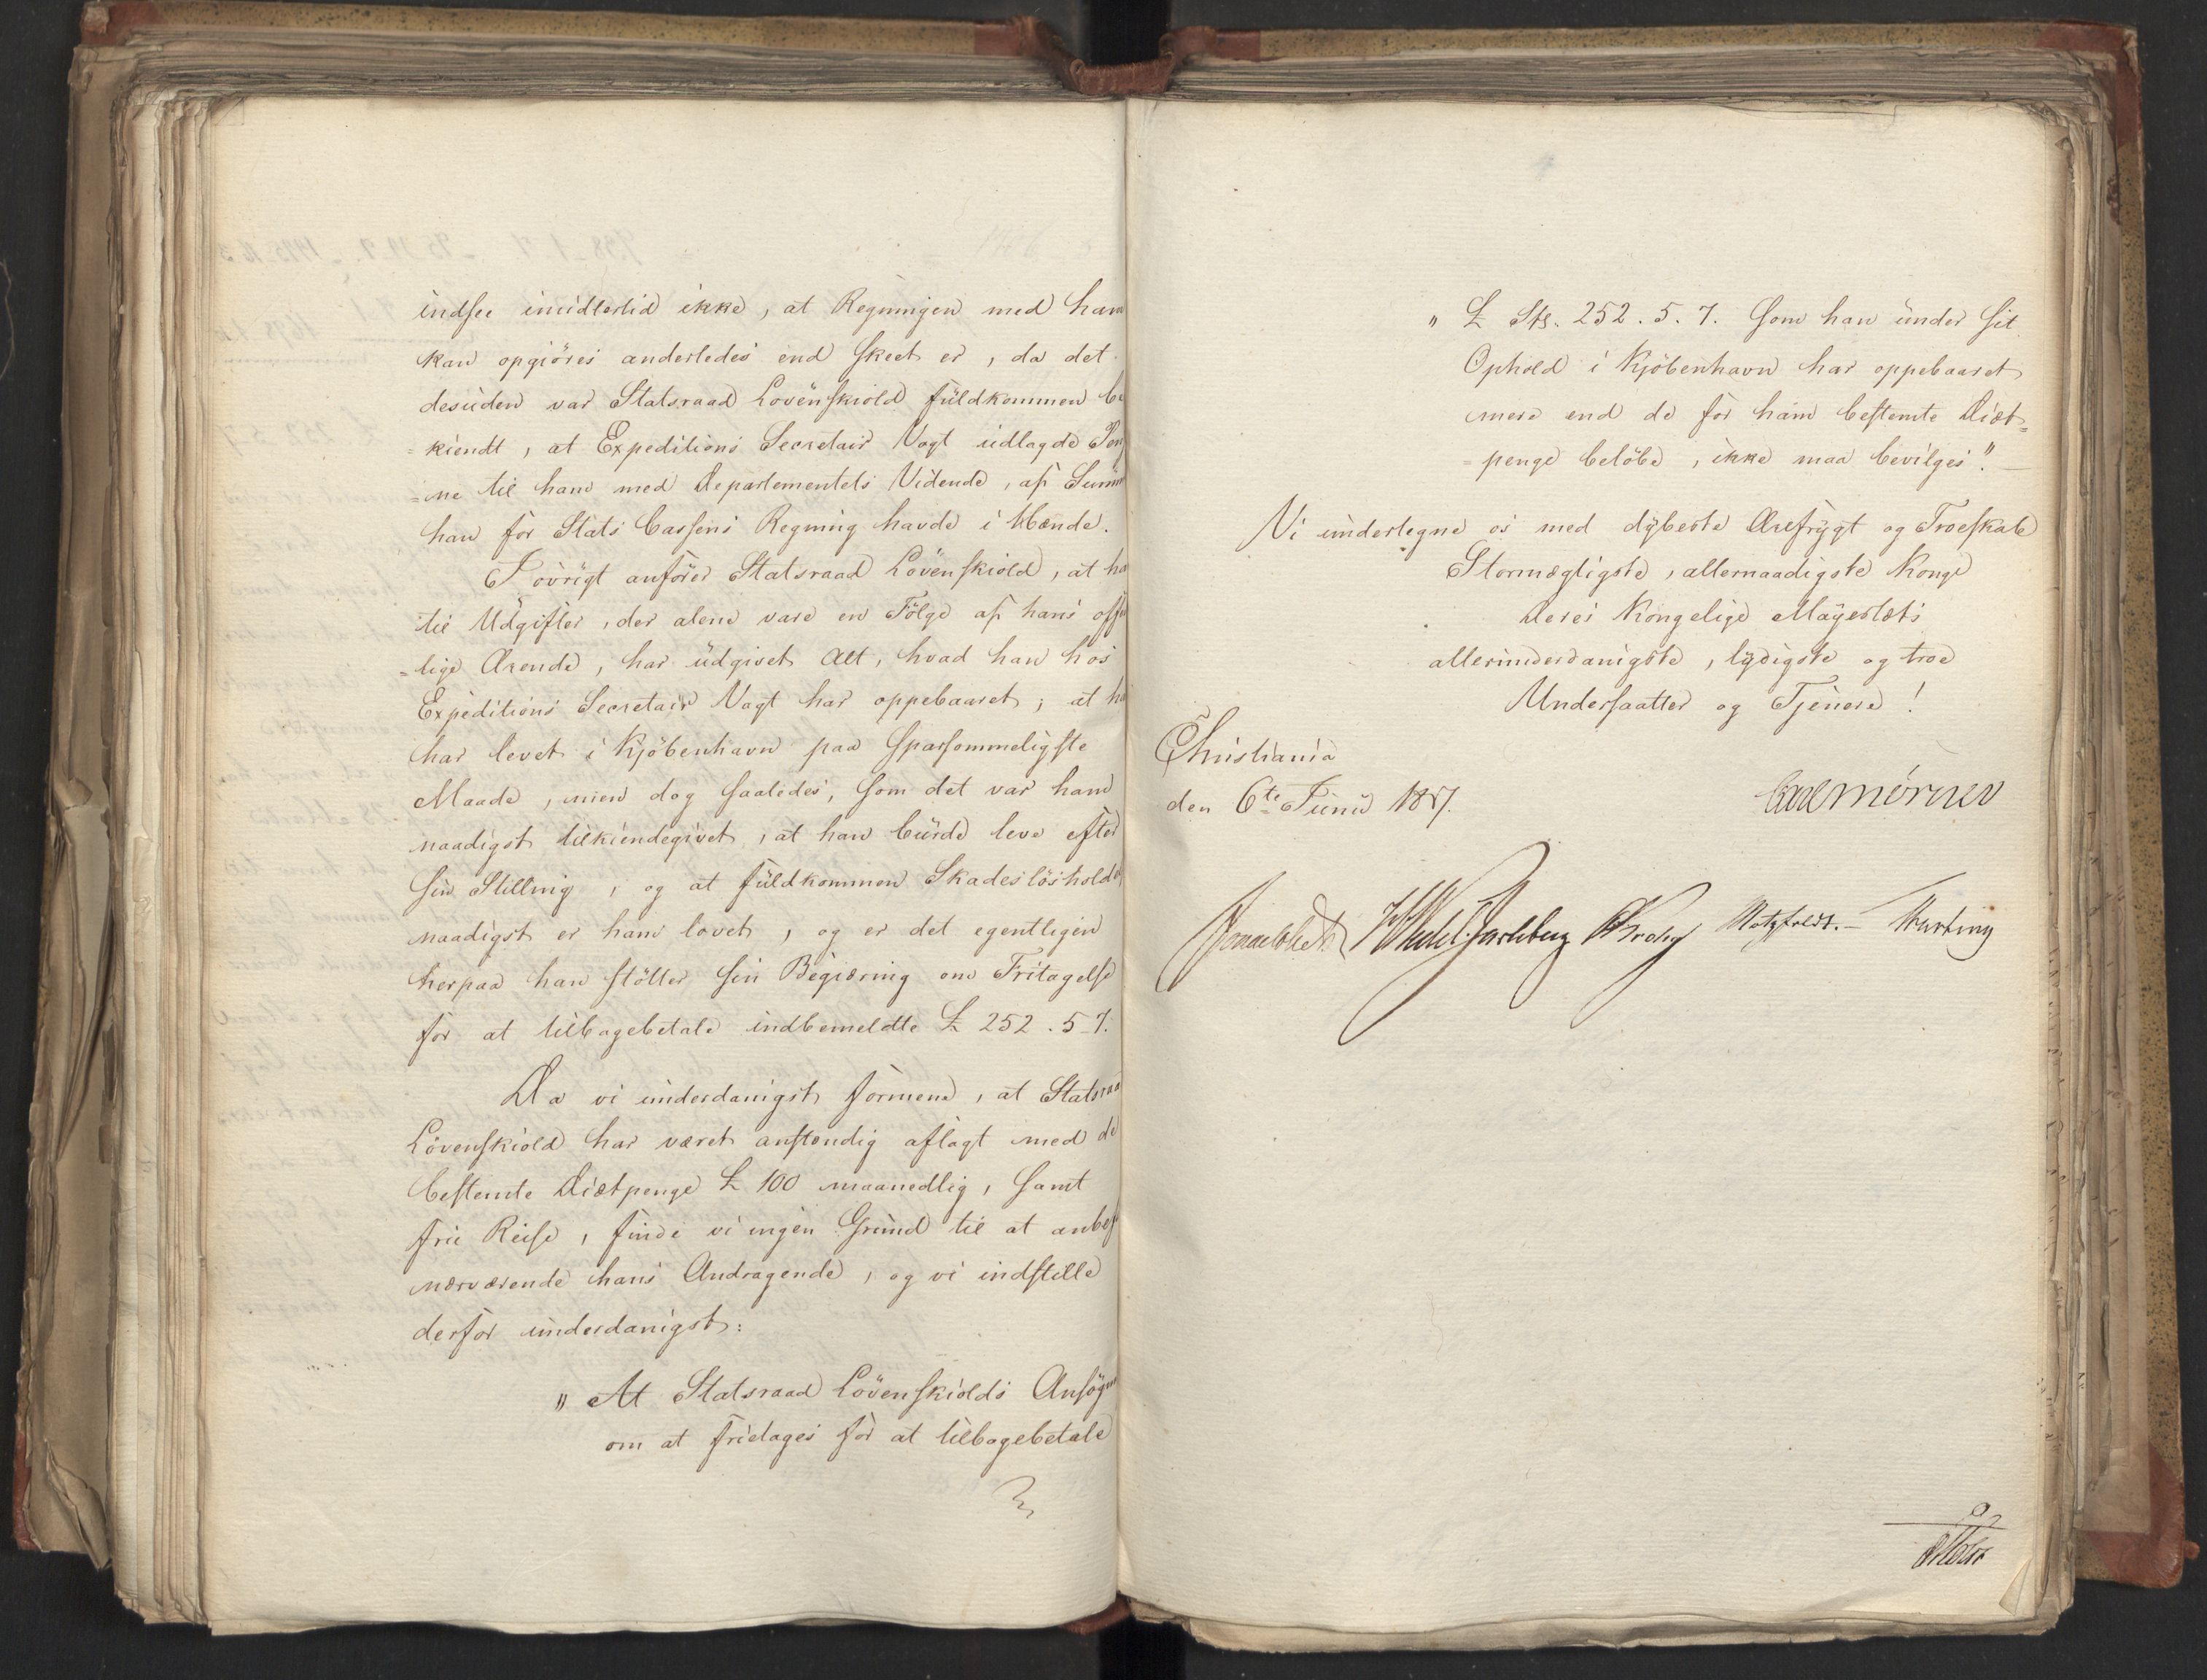 indsee imidlertid ikke, at Regningen med ham
kan opgiöres anderledes end skeet er, da det
desuden var Statsraad Lövenskiold fuldkommen be
=kiendt, at Expeditions Secretair Vogt udlagde Pen
=ne til ham med Departementets Vidende, af Summ
han for Stats Cassens Regning havde i Hænde.
I övrigt anförer Statsraad Lövenskiold, at ha
til Udgifter, der alene vare en Fölge af hans offe
=lige Ærende, har udgivet Alt, hvad han hos
Expeditions Secretair Vogt har oppebaaret; at ha
har levet i Kjöbenhavn paa sparsommeligste
Maade, men dog saaledes, som det var ham
naadigst tilkiendegivet, at han burde leve efter
sin Stilling, og at fuldkommen Skadeslösholde
naadigst er ham lovet, og er det egentligen
herpaa han stötter sin Begiæring om Fritagelse
for at tilbagebetale indbemeldte £ 252. 5. 7.
Da vi underdanigst formene, at Statsraa
Lövenskiold har været anstændig aflagt med de
bestemte Diætpenge £ 100 maanedlig, samt
frie Reise, finde vi ingen Grund til at anbef
nærværende hans Andragende, og vi indstille
derfor underdanigst:
„At Statsraad Lövenskiolds Ansögn
om at fritages for at tilbagebetale
„£ Stg. 252. 5. 7. som han under sit
Ophold i Kjöbenhavn har oppebaaret
mere end de for ham bestemte Diæt=
=penge belöbe, ikke maa bevilges".
Vi undertegne os med dybeste Ærefrygt og Troeskab
Stormægtigste, allernaadigste Konge
Deres Kongelige Mayestæts
allerunderdanigste, lydigste og troe
Undersaatter og Tjenere!
Christiania
den 6te Junii 1817.
Carl Mörner
Sommerhielm HWedel Jarlsberg Krohg Motzfeldt. Hartvig